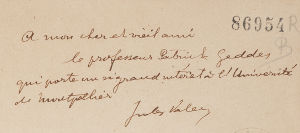 A mon cher et vieil ami
86954 R
B
le professeur Patrick Geddes
qui porte un si grand intérêt à l'Université
de Montpellier
Jules Valéry